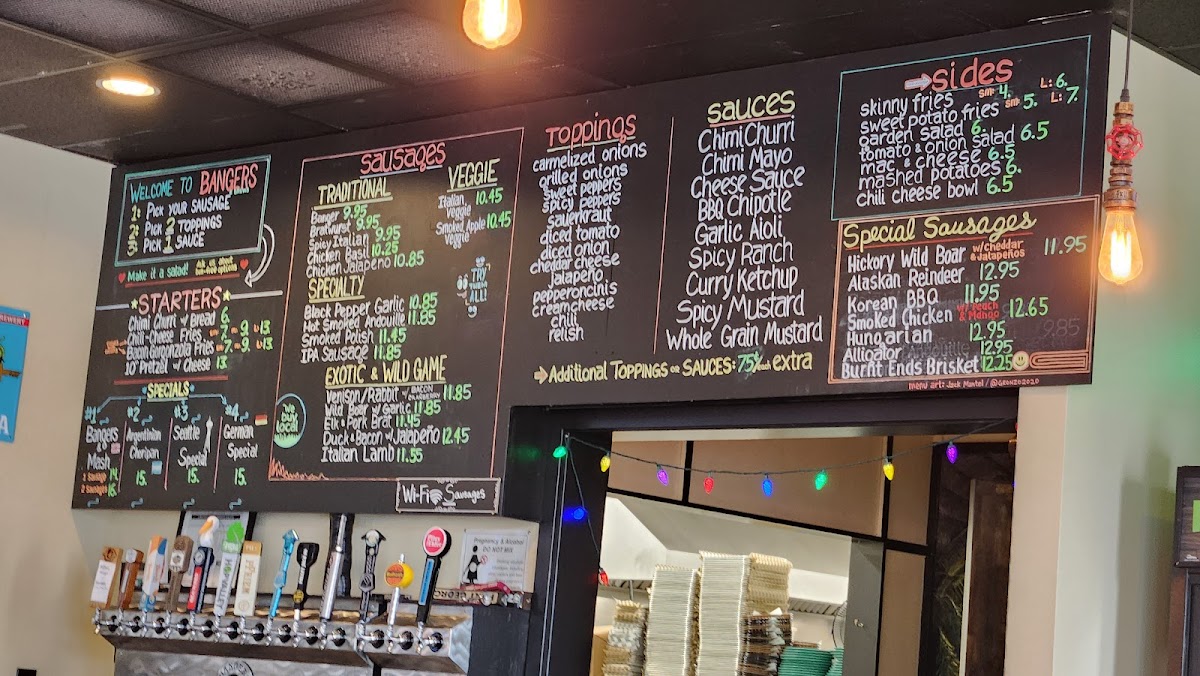 WELCOME TO BANGERS
1: PICK YOUR SAUSAGE
2: PICK 2 TOPPINGS
3: PICK 1 SAUCE
Make it a salad! Ask us about bun-free options
STARTERS
Chimi Churri w/ Bread 6.
Chili-Cheese Fries 9. 13
Bacon Gorgonzola Fries 7. 9. 13
10" Pretzel w/ Cheese 13.
SPECIALS
#1 Bangers & Mash
1 Sausage 14.
2 Sausages 16.
#2 Argentinian Choripan 15.
#3 Seattle Special 15.
#4 German Special 15.
SAUSAGES
TRADITIONAL
Banger 9.95
Bratwurst 9.95
Spicy Italian 9.95
Chicken Basil 10.25
Chicken Jalapeño 10.85
SPECIALTY
Black Pepper Garlic 10.85
Hot Smoked Andouille 11.85
Smoked Polish 11.45
IPA Sausage 11.85
EXOTIC & WILD GAME
Venison/Rabbit w/ BACON CRANBERRY 11.85
Wild Boar w/ Garlic 11.85
Elk & Pork Brat 11.45
Duck & Bacon w/ Jalapeño 12.45
Italian Lamb 11.55
VEGGIE
Italian Veggie 10.45
Smoked Apple Veggie 10.45
TRY THEM ALL!
We buy LOCAL
Wi-Fi Sausages
TOPPINGS
carmelized onions
grilled onions
sweet peppers
spicy peppers
sauerkraut
diced tomato
diced onion
cheddar cheese
jalapeño
pepperoncinis
cream cheese
chili
relish
SAUCES
ChimiChurri
Chimi Mayo
Cheese Sauce
BBQ Chipotle
Garlic Aioli
Spicy Ranch
Curry Ketchup
Spicy Mustard
Whole Grain Mustard
Additional TOPPINGS OR SAUCES: 75¢ each extra
sides
skinny fries sm: 4. L: 6.
sweet potato fries sm: 5. L: 7.
garden salad 6.
tomato & onion salad 6.5
mac & cheese 6.5
mashed potatoes 6.
chili cheese bowl 6.5
Special Sausages
Hickory Wild Boar w/cheddar & Jalapeños 11.95
Alaskan Reindeer 12.95
Korean BBQ 11.95
Smoked Chicken w/ Peach & Mango 12.65
Hungarian 12.95
Alligator 12.95
Burnt Ends Brisket 12.25
9.85
menu art: Jack Mantel / @GRONZO2020
Pregnancy & Alcohol
DO NOT MIX